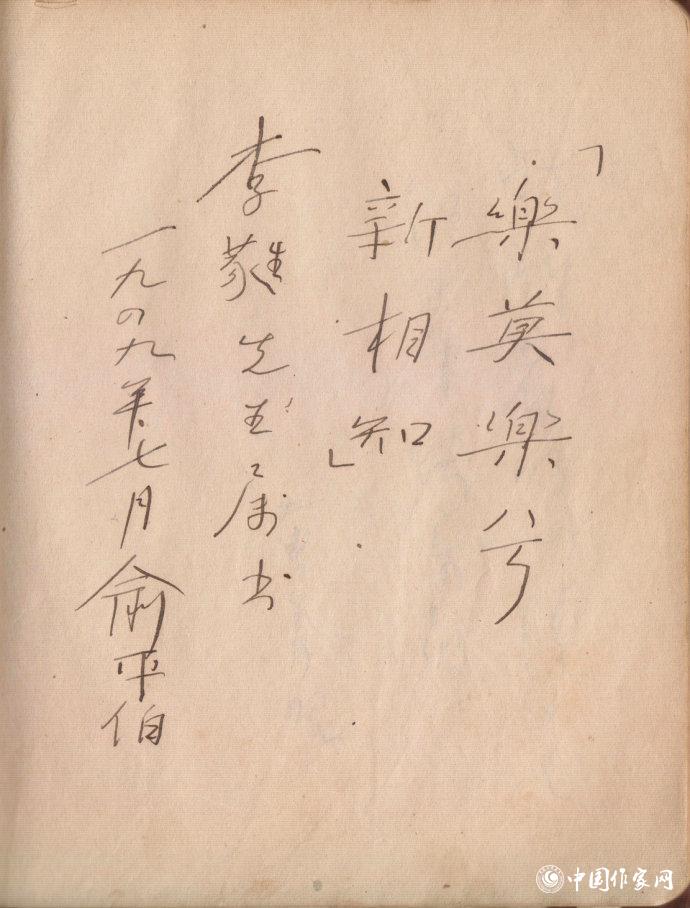 「樂莫樂兮
新相知」
李蕤先生属书
一九四九年七月俞平伯
中国作家网